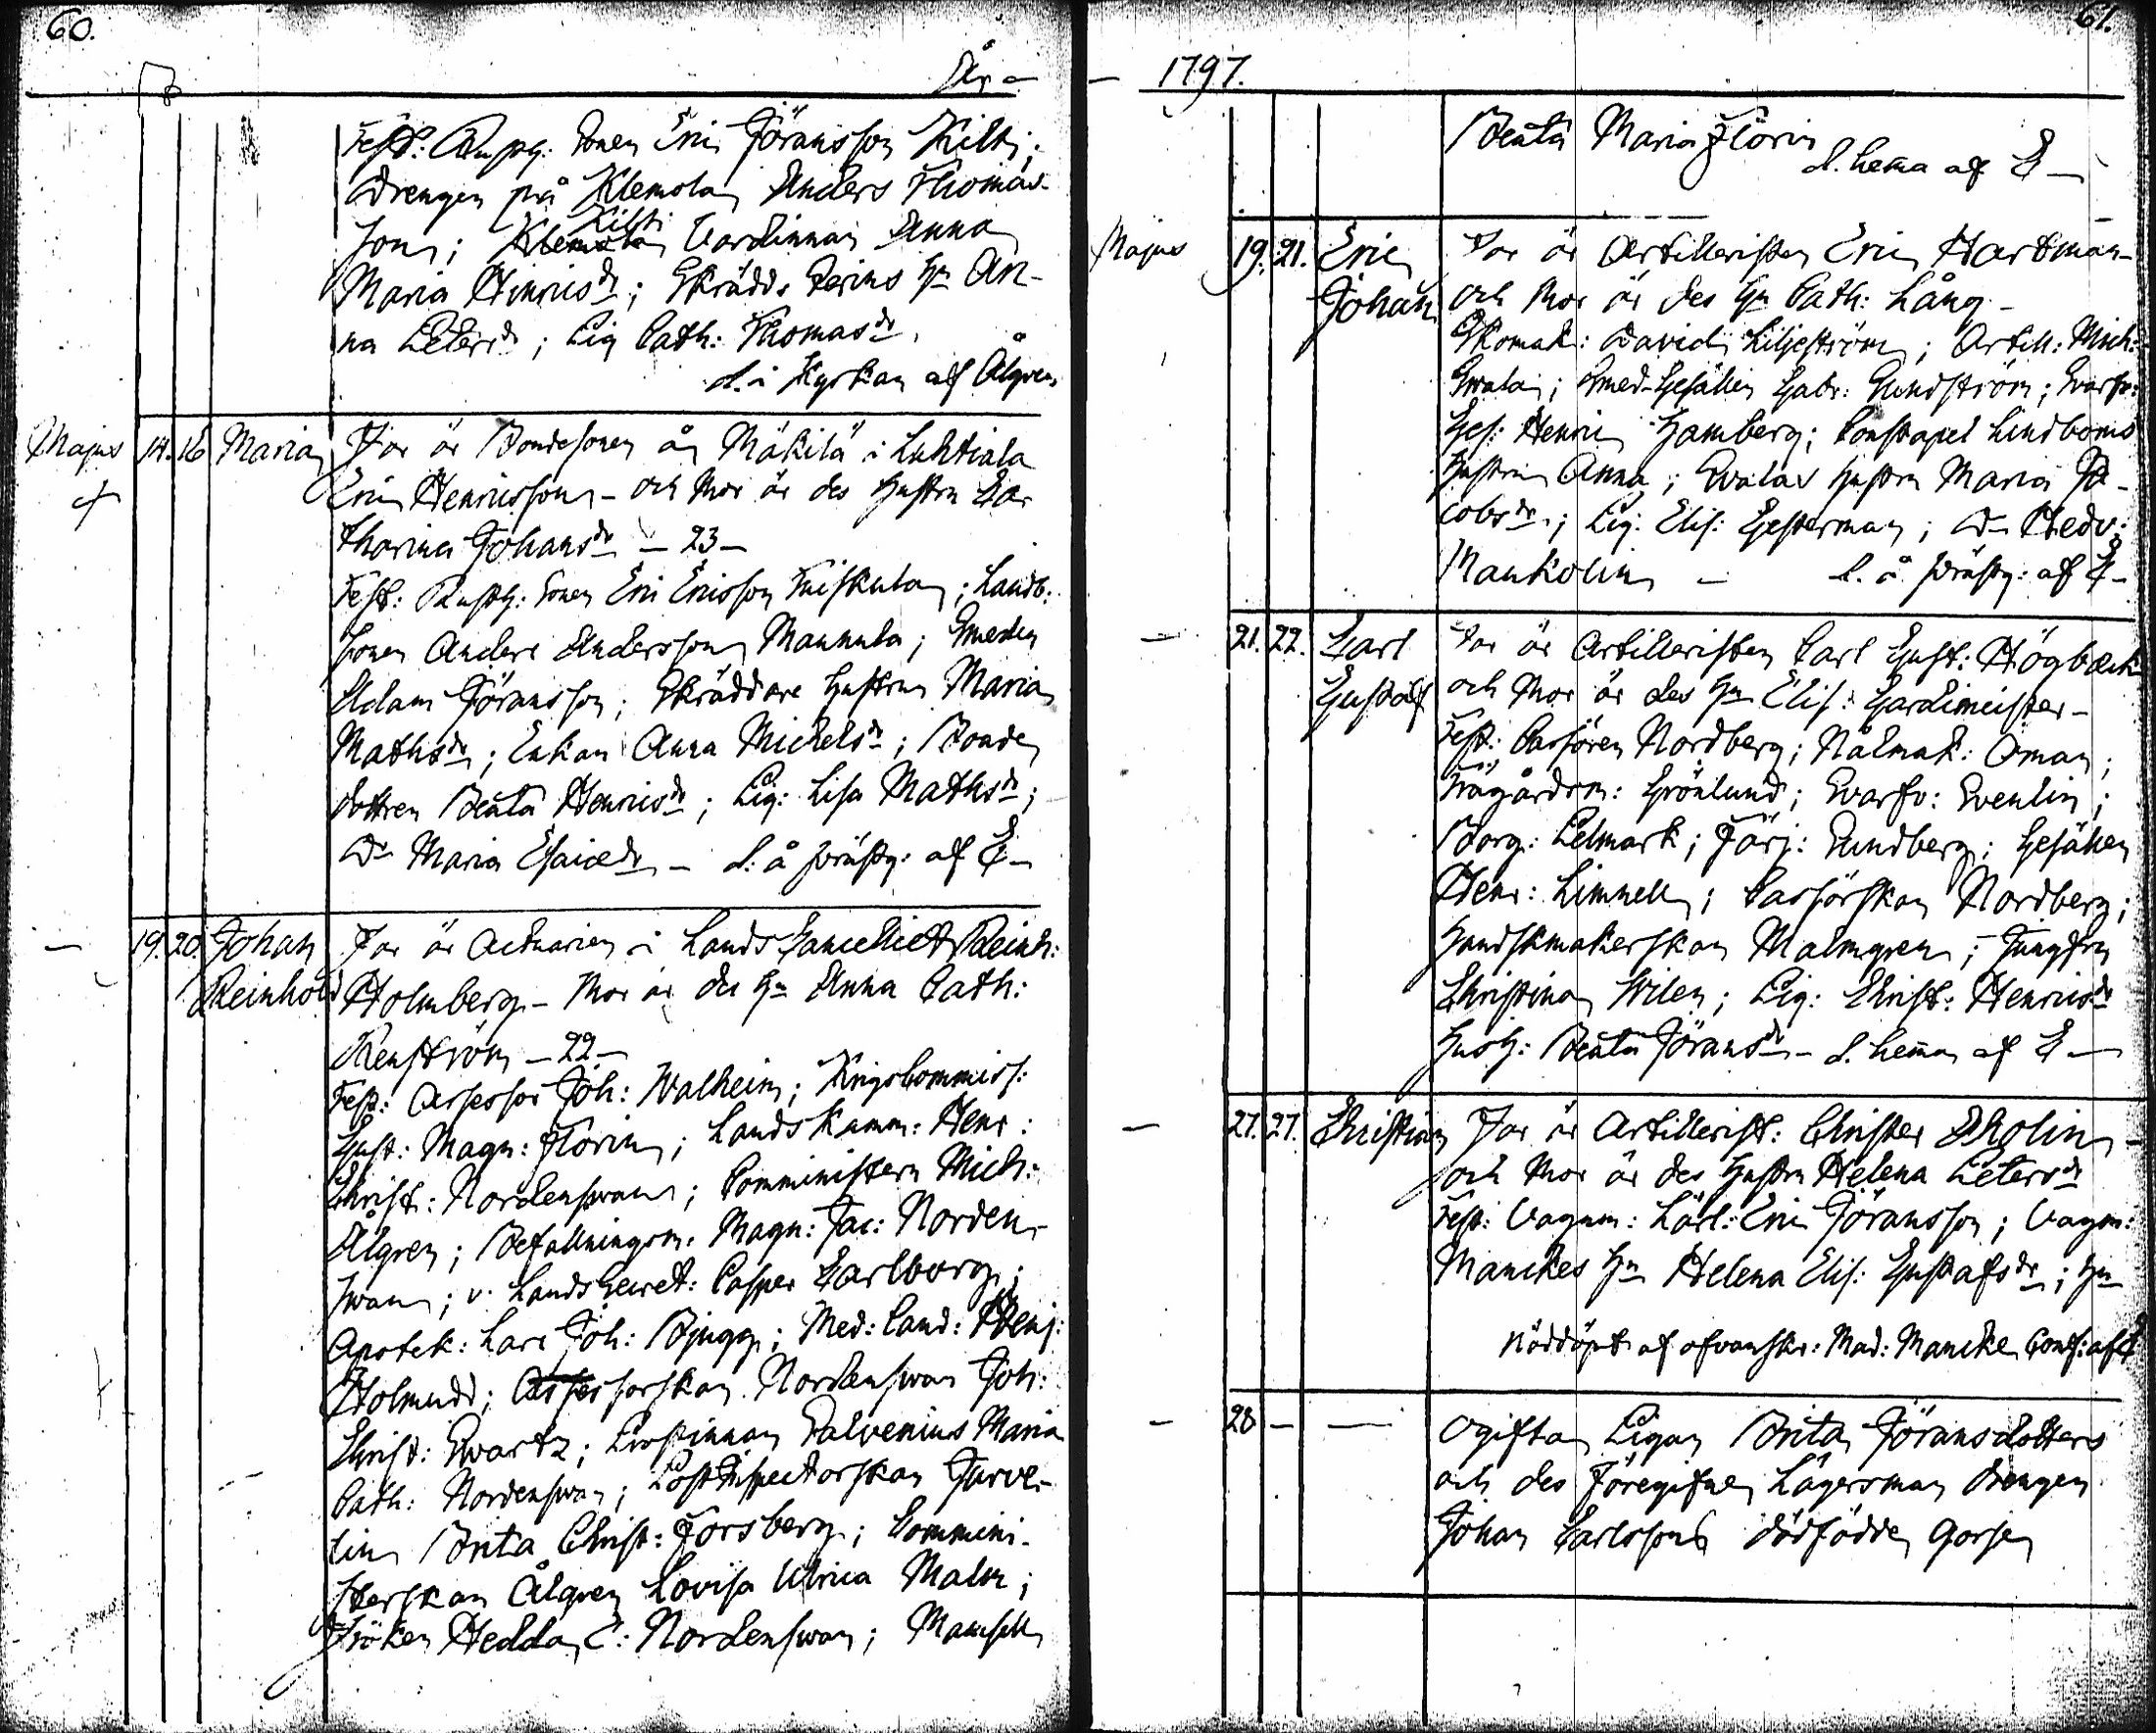 60.
År —
Test: Rustg: Sonen Eric Jöransson Kilti;
Drengen på Klemola Anders Thomas-
son; Kilti Värdinnan Anna
Maria Hinricsdr; Skrädd: Hu An-
na Petersdr; Pig Cath: Thomasdr.
d. i Kyrkan af Ålgren
Majus 14. 16 Maria Far är Bondesonen på Mäkilä i Luhtiala
Eric Henricsson - och Mor är des Hustru Ca-
tharina Johansdr — 23 —
Test: Rustg: Sonen Eric Ericsson Tuiskula; Landb:
Sonen Anders Andersson Mannula; Smeden
Adam Jöransson; Skräddare Hustrun Maria
Mathsdr; Enkan Anna Michelsdr; Bonde
dottren Beata Henricsdr; Pig: Lisa Mathsdr;
Do Maria Esaiædr — d: å prästg: af E —
— 19. 20. Johan Far är Actuarien i Lands Cancelliet Reinh:
Reinhold Holmberg — Mor är des Hu Anna Cath:
Renström — 22 —
Test: Assessor Joh: Walheim; Krigs Commiss:
Gust: Magn: Florin; Lands Kamm: Henr:
Christ: Nordenswan; Comministern Mich:
Ålgren; Befallningsm: Magn: Jac: Norden-
swan; v. Lands Secret: Casper Carlborg;
Apotek: Lars Joh: Bjugg; Med: Cand: Benj:
Holmudd; Assessorskan Nordenswan Joh:
Christ: Qvartz; Prostinnan Salvenius Maria
Cath: Nordenswan; Postinspectorskan Jurve-
lin Brita Christ: Forsberg; Commini-
sterskan Ålgren Lovisa Ulrica Malm;
Fröken Hedda C: Nordenswan; Mamsell
61.
— 1797.
Beata Maria Florin
d. hema af E —
Majus 19. 21. Eric Far är Artilleristen Eric Hartman —
Johan och Mor är des Hu Cath: Lång —
Skomak: David Liljeström; Artill: Mich:
Svala; Smed-Gesällen Gabr: Sundström; Svarfv:
Ges: Henric Hamberg; Constapel Lindboms
Hustru Anna; Svalas Hustru Maria Ja-
cobsdr; Pig: Elis: Westerman; Do Hedv:
Mankolin — d. å prästg: af E —
— 21. 22. Carl Far är Artilleristen Carl Gust: Högback
Gustaf och Mor är des Hu Elis: Gardimeister —
Test: Carsören Nordberg; Nålmak: Öman;
Trägårdsm: Grönlund; Svarfv: Svenlin;
Borg: Selmark; Färj: Sundberg; Gesällen
Henr: Limnell; Carsörskan Nordberg;
Handskmakerskan Malmgren; Jungfru
Christina Wilen; Pig: Christ: Henricsdr
Hush: Beata Jöransdr — d. hema af E —
— 27. 27. Christina Far är Artillerist: Christer Aholin —
och Mor är des Hustru Helena Petersdr
Test: Vagnm: Lärl: Eric Jöransson; Vagnm:
Manckes Hu Helena Elis: Gustafsdr; Hu
Nöddöpt af ofvanskr: Mad: Mancke Conf: af E
— 28 — — Ogifta Pigan Brita Jöransdotters
och des föregifne Lägersman Drengen
Johan Carlssons dödfödde gosse